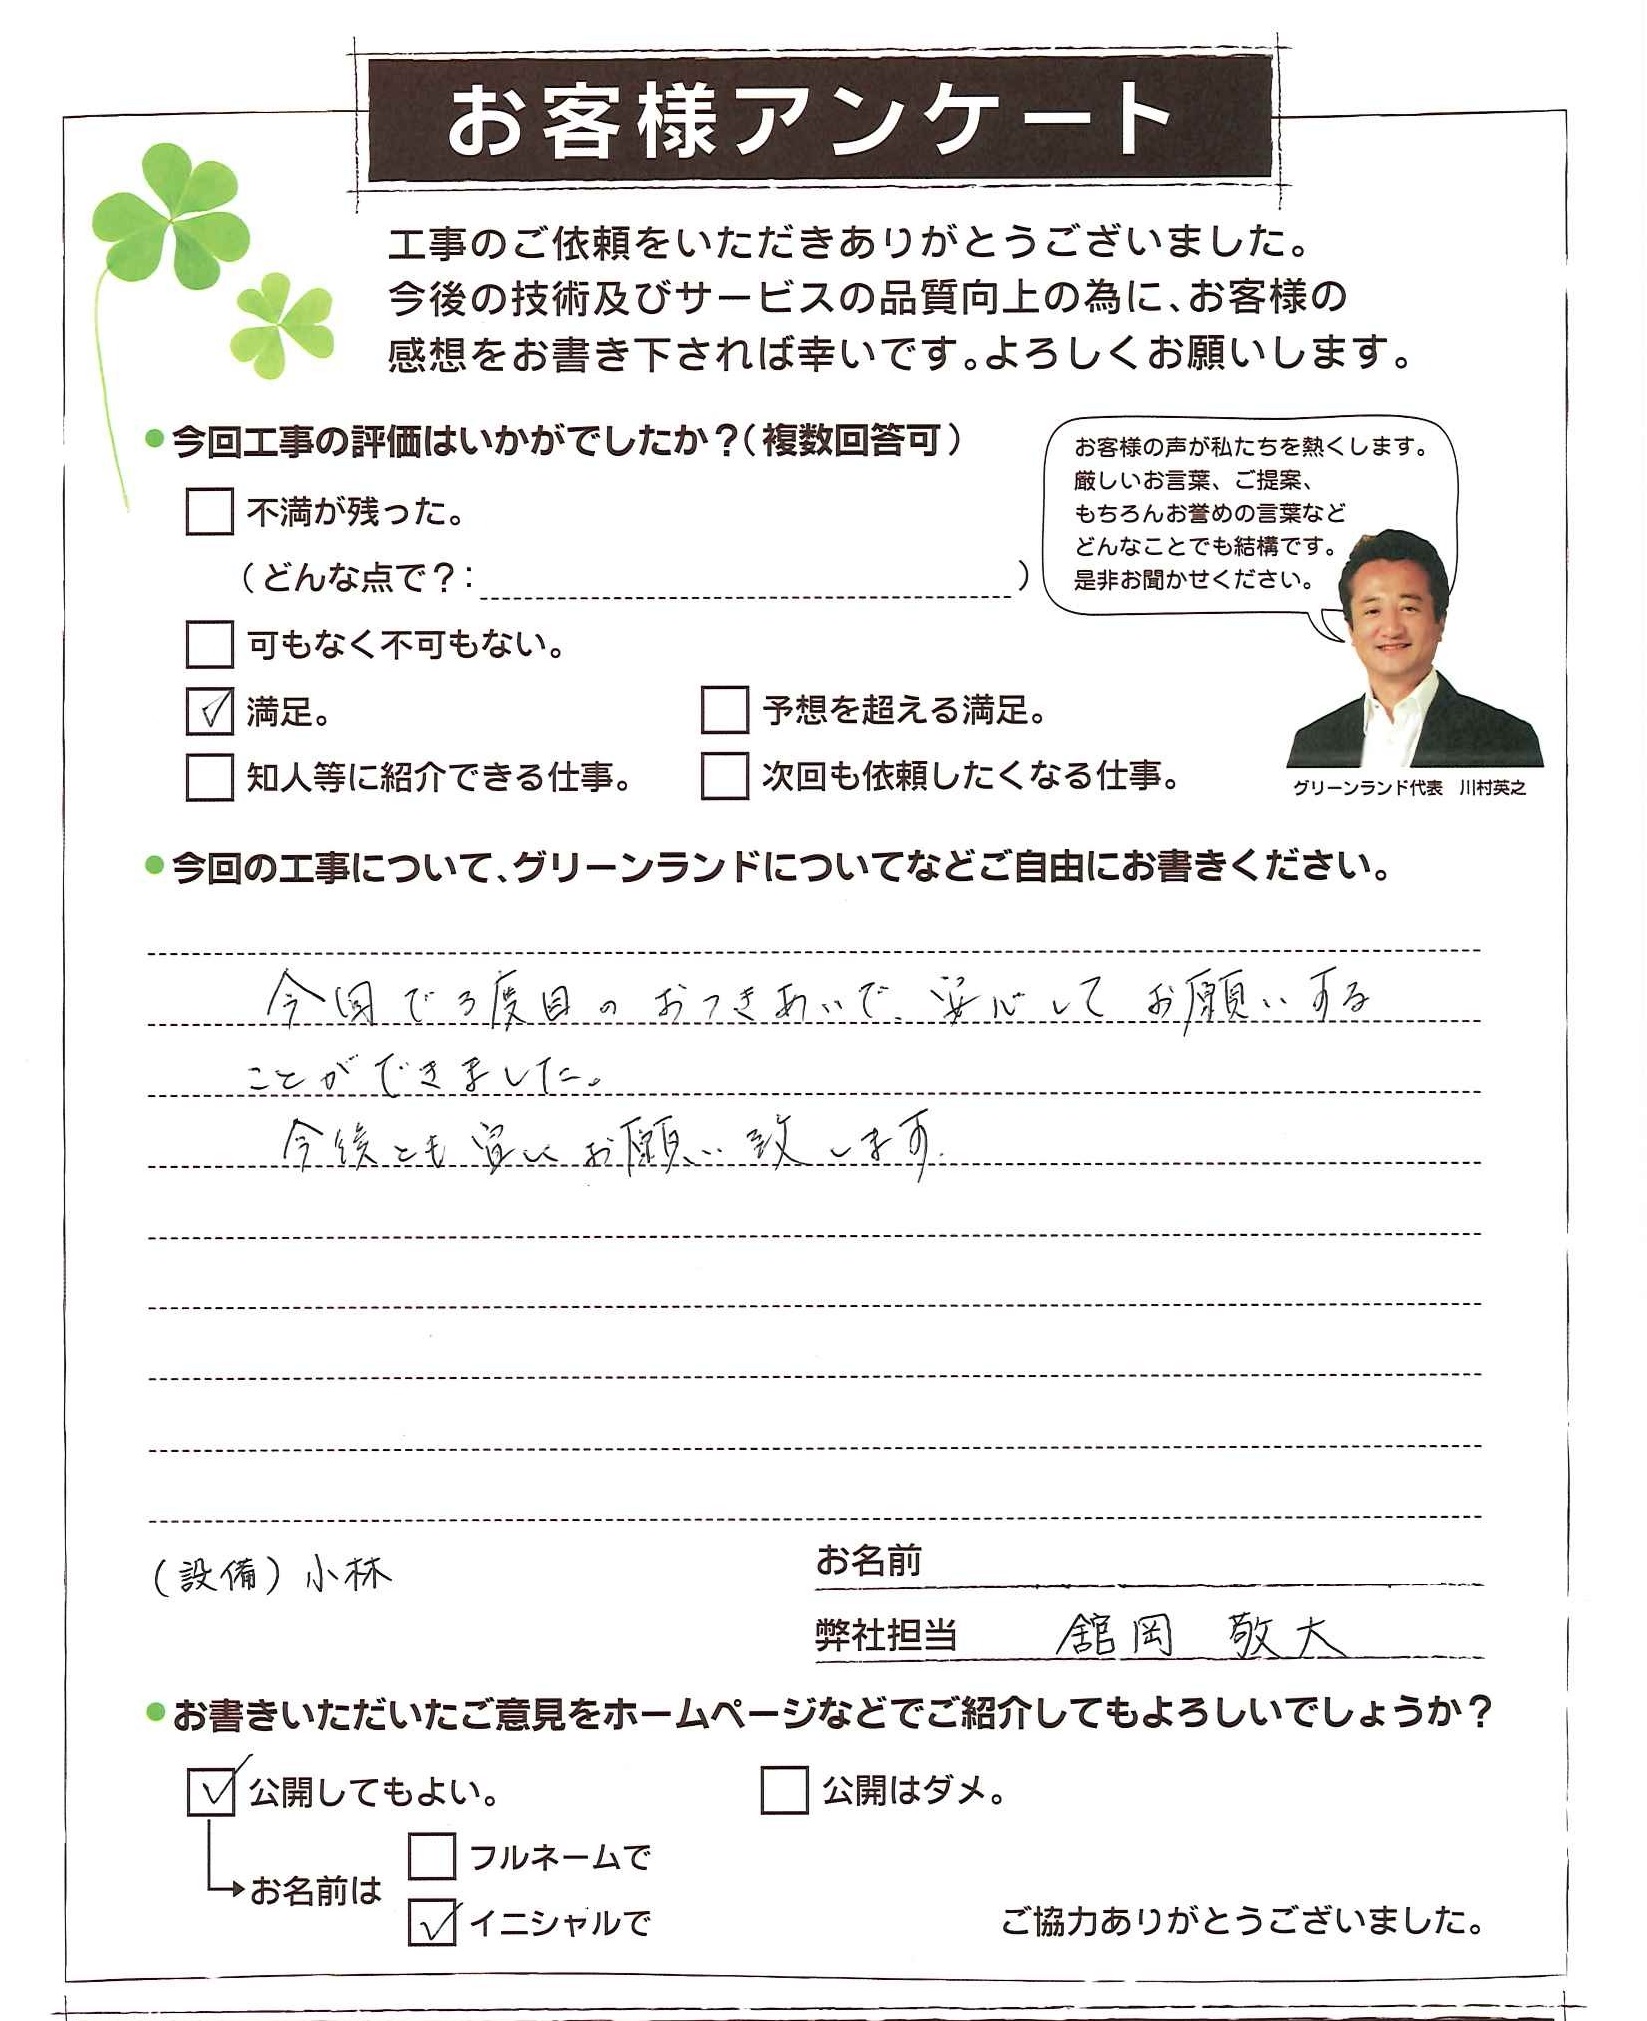 お客様アンケート
工事のご依頼をいただきありがとうございました。
今後の技術及びサービスの品質向上の為に、お客様の
感想をお書き下されば幸いです。よろしくお願いします。
●今回工事の評価はいかがでしたか？（複数回答可）
不満が残った。
（どんな点で？：　）
可もなく不可もない。
満足。
予想を超える満足。
知人等に紹介できる仕事。
次回も依頼したくなる仕事。
お客様の声が私たちを熱くします。
厳しいお言葉、ご提案、
もちろんお誉めの言葉など
どんなことでも結構です。
是非お聞かせください。
グリーンランド代表　川村英之
●今回の工事について、グリーンランドについてなどご自由にお書きください。
今回で3度目のおつきあいで、安心してお願いする
ことができました。
今後とも宜しくお願い致します。
（設備）小林
お名前
弊社担当　舘岡　敬大
●お書きいただいたご意見をホームページなどでご紹介してもよろしいでしょうか？
公開してもよい。
公開はダメ。
お名前は
フルネームで
イニシャルで
ご協力ありがとうございました。